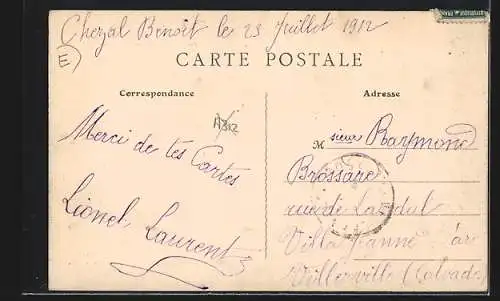 Chezal Benoit le 23 Juillet 1912
E
CARTE POSTALE
Correspondance
Adresse
A312
Merci de tes Cartes
Lionel Laurent
M sieur Raymond
Brossare
rue de
Villa Jeanne
Villerville (Calvados)